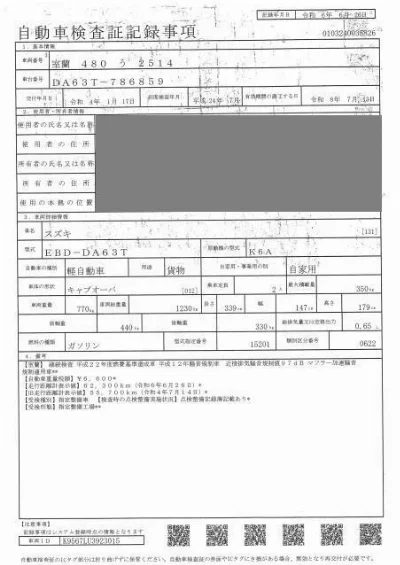 記録年月日 令和 6年 6月 26日
自動車検査証記録事項
0103240938826
1．基本情報
車両番号 室蘭 480 う 2514
車台番号 DA63T-786859
交付年月日 令和 4年 1月 17日 初度検査年月 平成 24年 7月 有効期間の満了する日 令和 8年 7月 13日
2．使用者・所有者情報
使用者の氏名又は名称
使用者の住所
所有者の氏名又は名称
所有者の住所
使用の本拠の位置
3．車両詳細情報
車名 スズキ [131]
型式 EBD-DA63T 原動機の型式 K6A
自動車の種別 軽自動車 用途 貨物 自家用・事業用の別 自家用
車体の形状 キャブオーバ [012] 乗車定員 2人 最大積載量 350kg
車両重量 770kg 車両総重量 1230kg 長さ 339cm 幅 147cm 高さ 179cm
前軸重 440kg 後軸重 330kg 総排気量又は定格出力 0.65L
燃料の種類 ガソリン 型式指定番号 15201 類別区分番号 0622
4．備考
【室蘭】 継続検査 平成22年度燃費基準達成車 平成12年騒音規制車 近接排気騒音規制値97dB マフラー加速騒音
規制適用車**
【自動車重量税額】¥6,600*
【走行距離計表示値】62,300km（令和6年6月26日）
【旧走行距離計表示値】55,700km（令和4年7月14日）
【受検種別】指定整備車 【検査時の点検整備実施状況】点検整備記録簿記載あり*
【受検形態】指定整備工場**
【注意事項】
記録事項はシステム登録時点の情報となります
車両ID K9567LU3923015
自動車検査証のICタグ部分は折り曲げずに保管ください。自動車検査証の券面やICタグに不備がある場合、無効となり再交付が必要です。